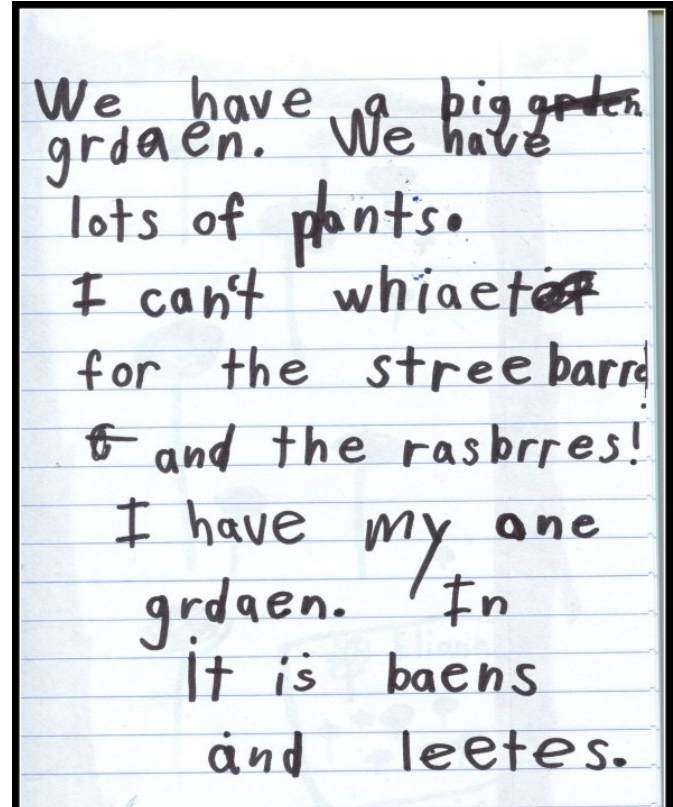 We have a big garden
grdaen. We have
lots of plants.
I can't whiaet
for the streebarrd
and the rasbrres!
I have my one
grdaen. In
it is baens
and leetes.